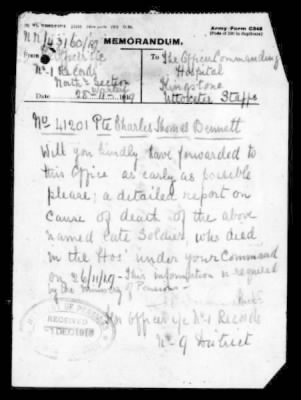 Army Form C348
MEMORANDUM.
From
No 1 Records
North Section
To The Officer Commanding
Hospital
Kingstone
Uttoxeter Staffs
Date 28-11-1919
No 41201 Pte Charles Thomas Bennett
Will you kindly have forwarded to
this Office as early as possible
please; a detailed report on
cause of death of the above
named late Soldier, who died
in the Hos' under your Command
on 26/11/19 - This information is required
by the Ministry of Pensions -
Officer i/c No 1 Records
No 9 District
RECEIVED